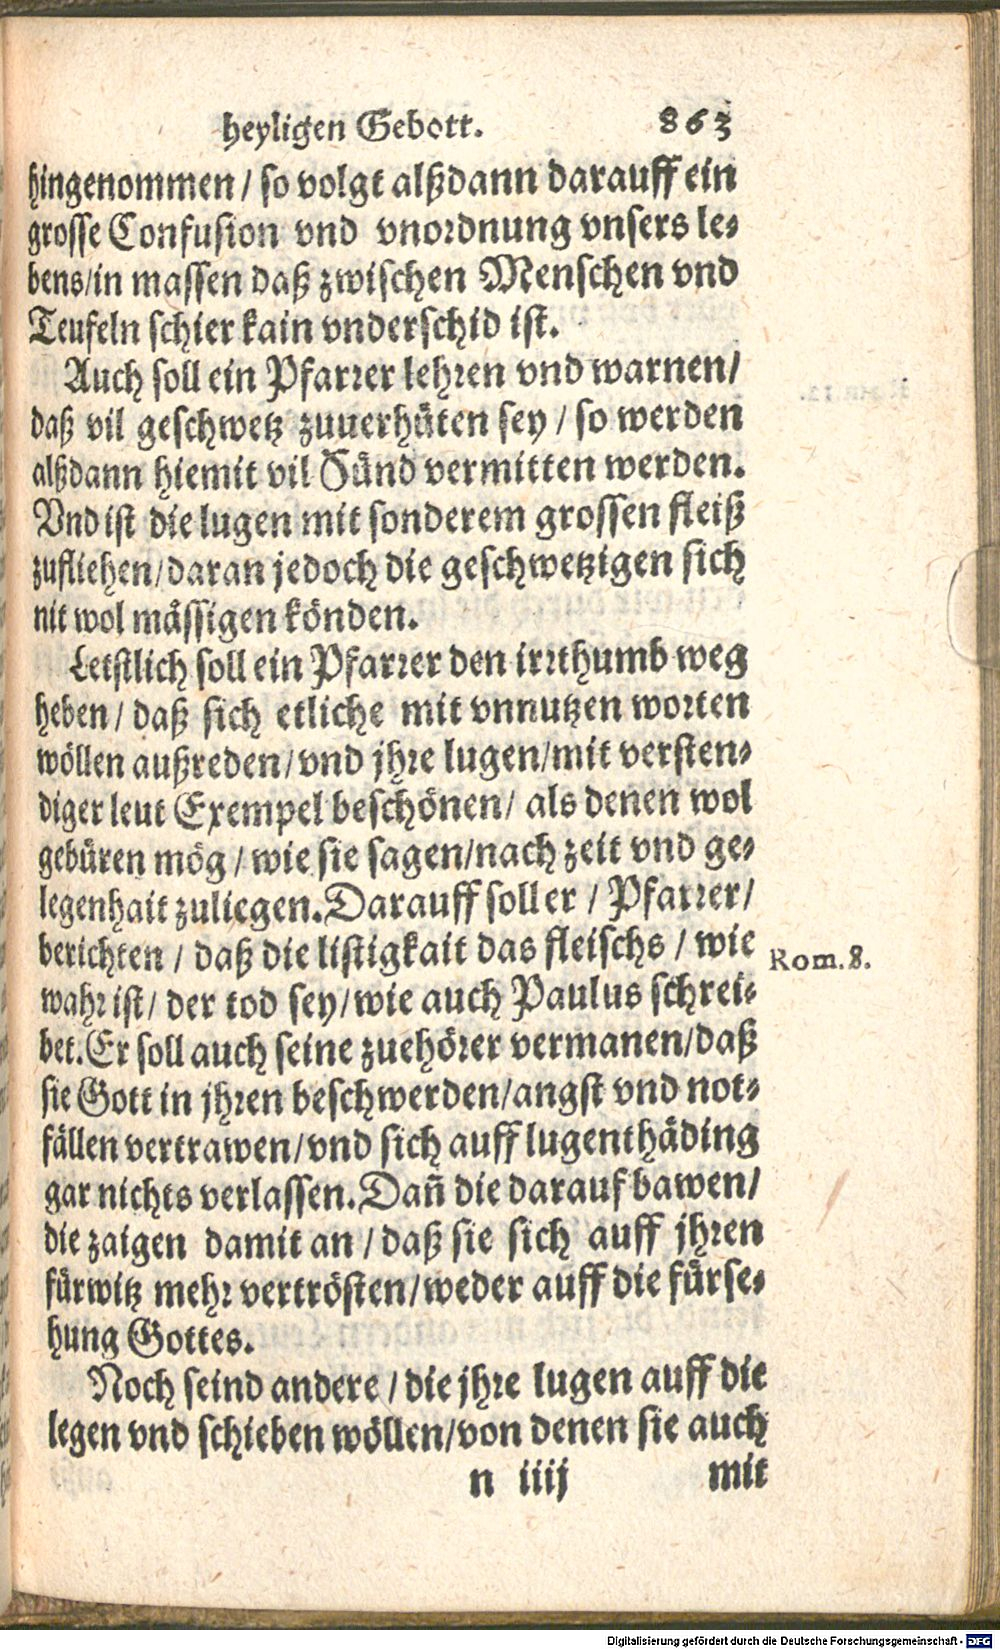 heyligen Gebott. 863
hingenommen / so volgt alßdann darauff ein
grosse Confusion vnd vnordnung vnsers le-
bens/in massen daß zwischen Menschen vnd
Teufeln schier kain vnderschid ist.
Auch soll ein Pfarrer lehren vnd warnen/
daß vil geschwetz zuuerhüten sey / so werden
alßdann hiemit vil Sünd vermitten werden.
Vnd ist die lugen mit sonderem grossen fleiß
zufliehen/daran jedoch die geschwetzigen sich
nit wol mässigen könden.
Letstlich soll ein Pfarrer den irrthumb weg
heben / daß sich etliche mit vnnutzen worten
wöllen außreden/vnd jhre lugen/mit versten-
diger leut Exempel beschönen/ als denen wol
gebüren mög / wie sie sagen/nach zeit vnd ge-
legenhait zuliegen. Darauff soll er / Pfarrer/
berichten / daß die listigkait das fleischs / wie
wahr ist/ der tod sey/wie auch Paulus schrei-
Rom. 8.
bet. Er soll auch seine zuehörer vermanen/daß
sie Gott in jhren beschwerden/angst vnd not-
fällen vertrawen/vnd sich auff lugenthäding
gar nichts verlassen. Dañ die darauf bawen/
die zaigen damit an / daß sie sich auff jhren
fürwitz mehr vertrösten/weder auff die fürse-
hung Gottes.
Noch seind andere / die jhre lugen auff die
legen vnd schieben wöllen/von denen sie auch
n iiij mit
Digitalisierung gefördert durch die Deutsche Forschungsgemeinschaft - DFG